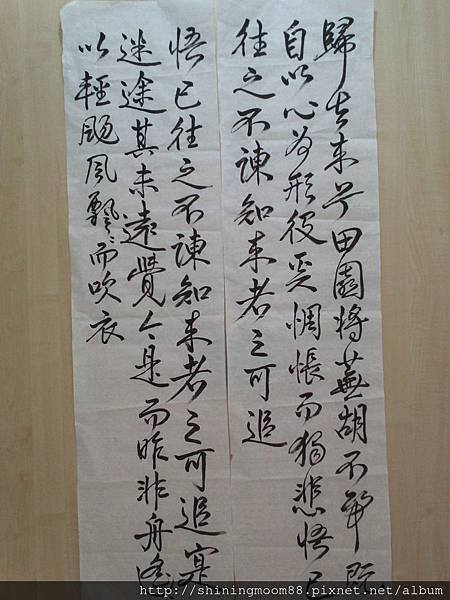 歸去来兮田園將蕪胡不歸既
自以心為形役奚惆悵而獨悲悟已
往之不諫知来者之可追
悟已往之不諫知来者之可追寔
迷途其未遠覺今是而昨非舟遙〻
以輕颺風飄〻而吹衣
http://shiningmoom88.pixnet.net/album